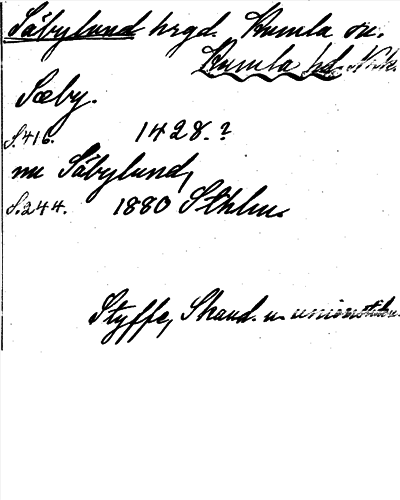 Säbylund hrgd. Kumla sn.
Kumla hd. Närke.
Sæby.
S.416. 1428.?
nu Säbylund,
S.244. 1880 Sthlm.
Styffe, Skand. u. unionstiden.